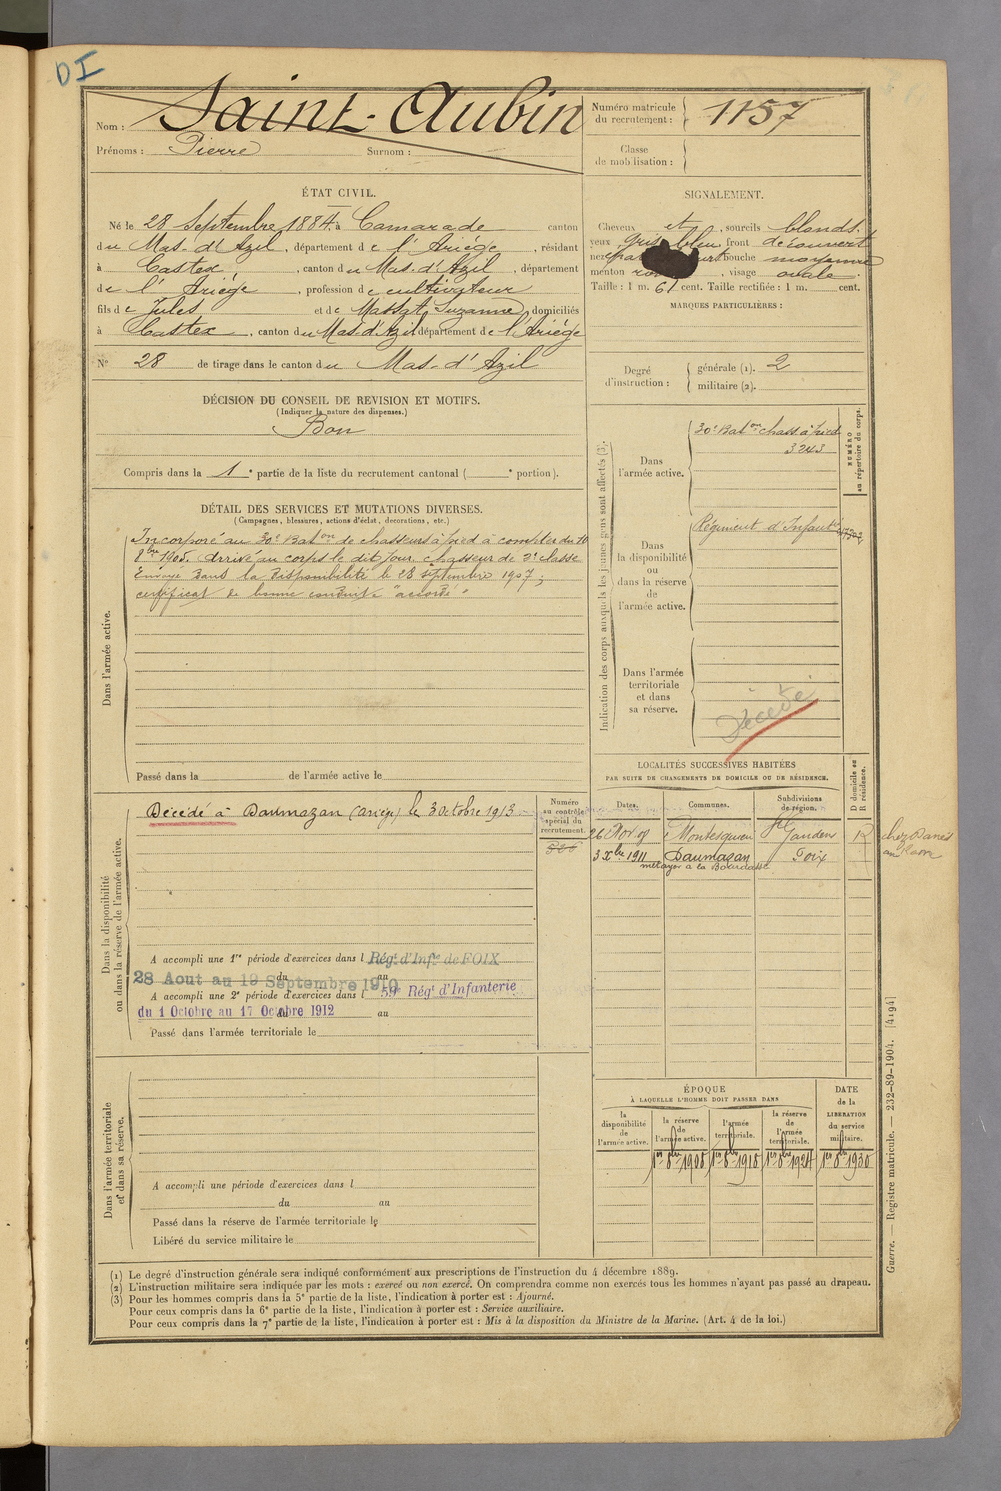 DI
Nom : Saint-Aubin
Prénoms : Pierre Surnom :
Numéro matricule du recrutement : 1157
Classe de mobilisation :
ÉTAT CIVIL.
Né le 28 Septembre 1884 à Camarade canton
du Mas-d'Azil, département de l'Ariège, résidant
à Castex, canton du Mas-d'Azil, département
de l'Ariège, profession de cultivateur
fils de Jules et de Massat Suzanne, domiciliés
à Castex, canton du Mas d'Azil département de l'Ariège
N° 28 de tirage dans le canton du Mas-d'Azil
SIGNALEMENT.
Cheveux et, sourcils blonds.
yeux gris bleu, front découvert
nez bouche moyenne
menton, visage ovale.
Taille : 1 m. 61 cent. Taille rectifiée : 1 m. cent.
MARQUES PARTICULIÈRES :
Degré d'instruction : générale (1). 2
militaire (2).
DÉCISION DU CONSEIL DE REVISION ET MOTIFS.
(Indiquer la nature des dispenses.)
Bon
Compris dans la 1e partie de la liste du recrutement cantonal ( e portion).
DÉTAIL DES SERVICES ET MUTATIONS DIVERSES.
(Campagnes, blessures, actions d'éclat, décorations, etc.)
Dans l'armée active.
Incorporé au 30e Baton de chasseurs à pied à compter du 10
8bre 1905. Arrivé au corps le dit jour. chasseur de 2e classe
Envoyé dans la disponibilité le 28 septembre 1907 ;
certificat de bonne conduite "accordé"
Passé dans la de l'armée active le
Indication des corps auxquels les jeunes gens sont affectés (3).
NUMÉRO au répertoire du corps.
Dans l'armée active.
30e Baton chass à pied
3243
Dans la disponibilité ou dans la réserve de l'armée active.
Régiment d'Infanterie
Dans l'armée territoriale et dans sa réserve.
Décédé
Dans la disponibilité ou dans la réserve de l'armée active.
Décédé à Daumazan (Ariège) le 3 Octobre 1913
Numéro au contrôle spécial du recrutement.
A accompli une 1re période d'exercices dans l Régt d'Infie de FOIX
du au
28 Aout au 19 Septembre 1910
A accompli une 2e période d'exercices dans l 59e Régt d'Infanterie
du au
du 1 Octobre au 17 Octobre 1912
Passé dans l'armée territoriale le
LOCALITÉS SUCCESSIVES HABITÉES
PAR SUITE DE CHANGEMENTS DE DOMICILE OU DE RÉSIDENCE.
Dates. Communes. Subdivisions de région. D domicile ou R résidence.
26 Nov 09 Montesquieu St Gaudens R chez
3 Xbre 1911 Daumazan Foix
métayer à la Bourdasse
Dans l'armée territoriale et dans sa réserve.
A accompli une période d'exercices dans l
du au
Passé dans la réserve de l'armée territoriale le
Libéré du service militaire le
ÉPOQUE
À LAQUELLE L'HOMME DOIT PASSER DANS
la disponibilité de l'armée active.
la réserve de l'armée active.
l'armée territoriale.
la réserve de l'armée territoriale.
DATE de la LIBÉRATION du service militaire.
1er 8bre 1908 1er 8bre 1918 1er 8bre 1924 1er 8bre 1930
(1) Le degré d'instruction générale sera indiqué conformément aux prescriptions de l'instruction du 4 décembre 1889.
(2) L'instruction militaire sera indiquée par les mots : exercé ou non exercé. On comprendra comme non exercés tous les hommes n'ayant pas passé au drapeau.
(3) Pour les hommes compris dans la 5e partie de la liste, l'indication à porter est : Ajourné.
Pour ceux compris dans la 6e partie de la liste, l'indication à porter est : Service auxiliaire.
Pour ceux compris dans la 7e partie de la liste, l'indication à porter est : Mis à la disposition du Ministre de la Marine. (Art. 4 de la loi.)
Guerre. — Registre matricule. — 232-89-1904. [4194]